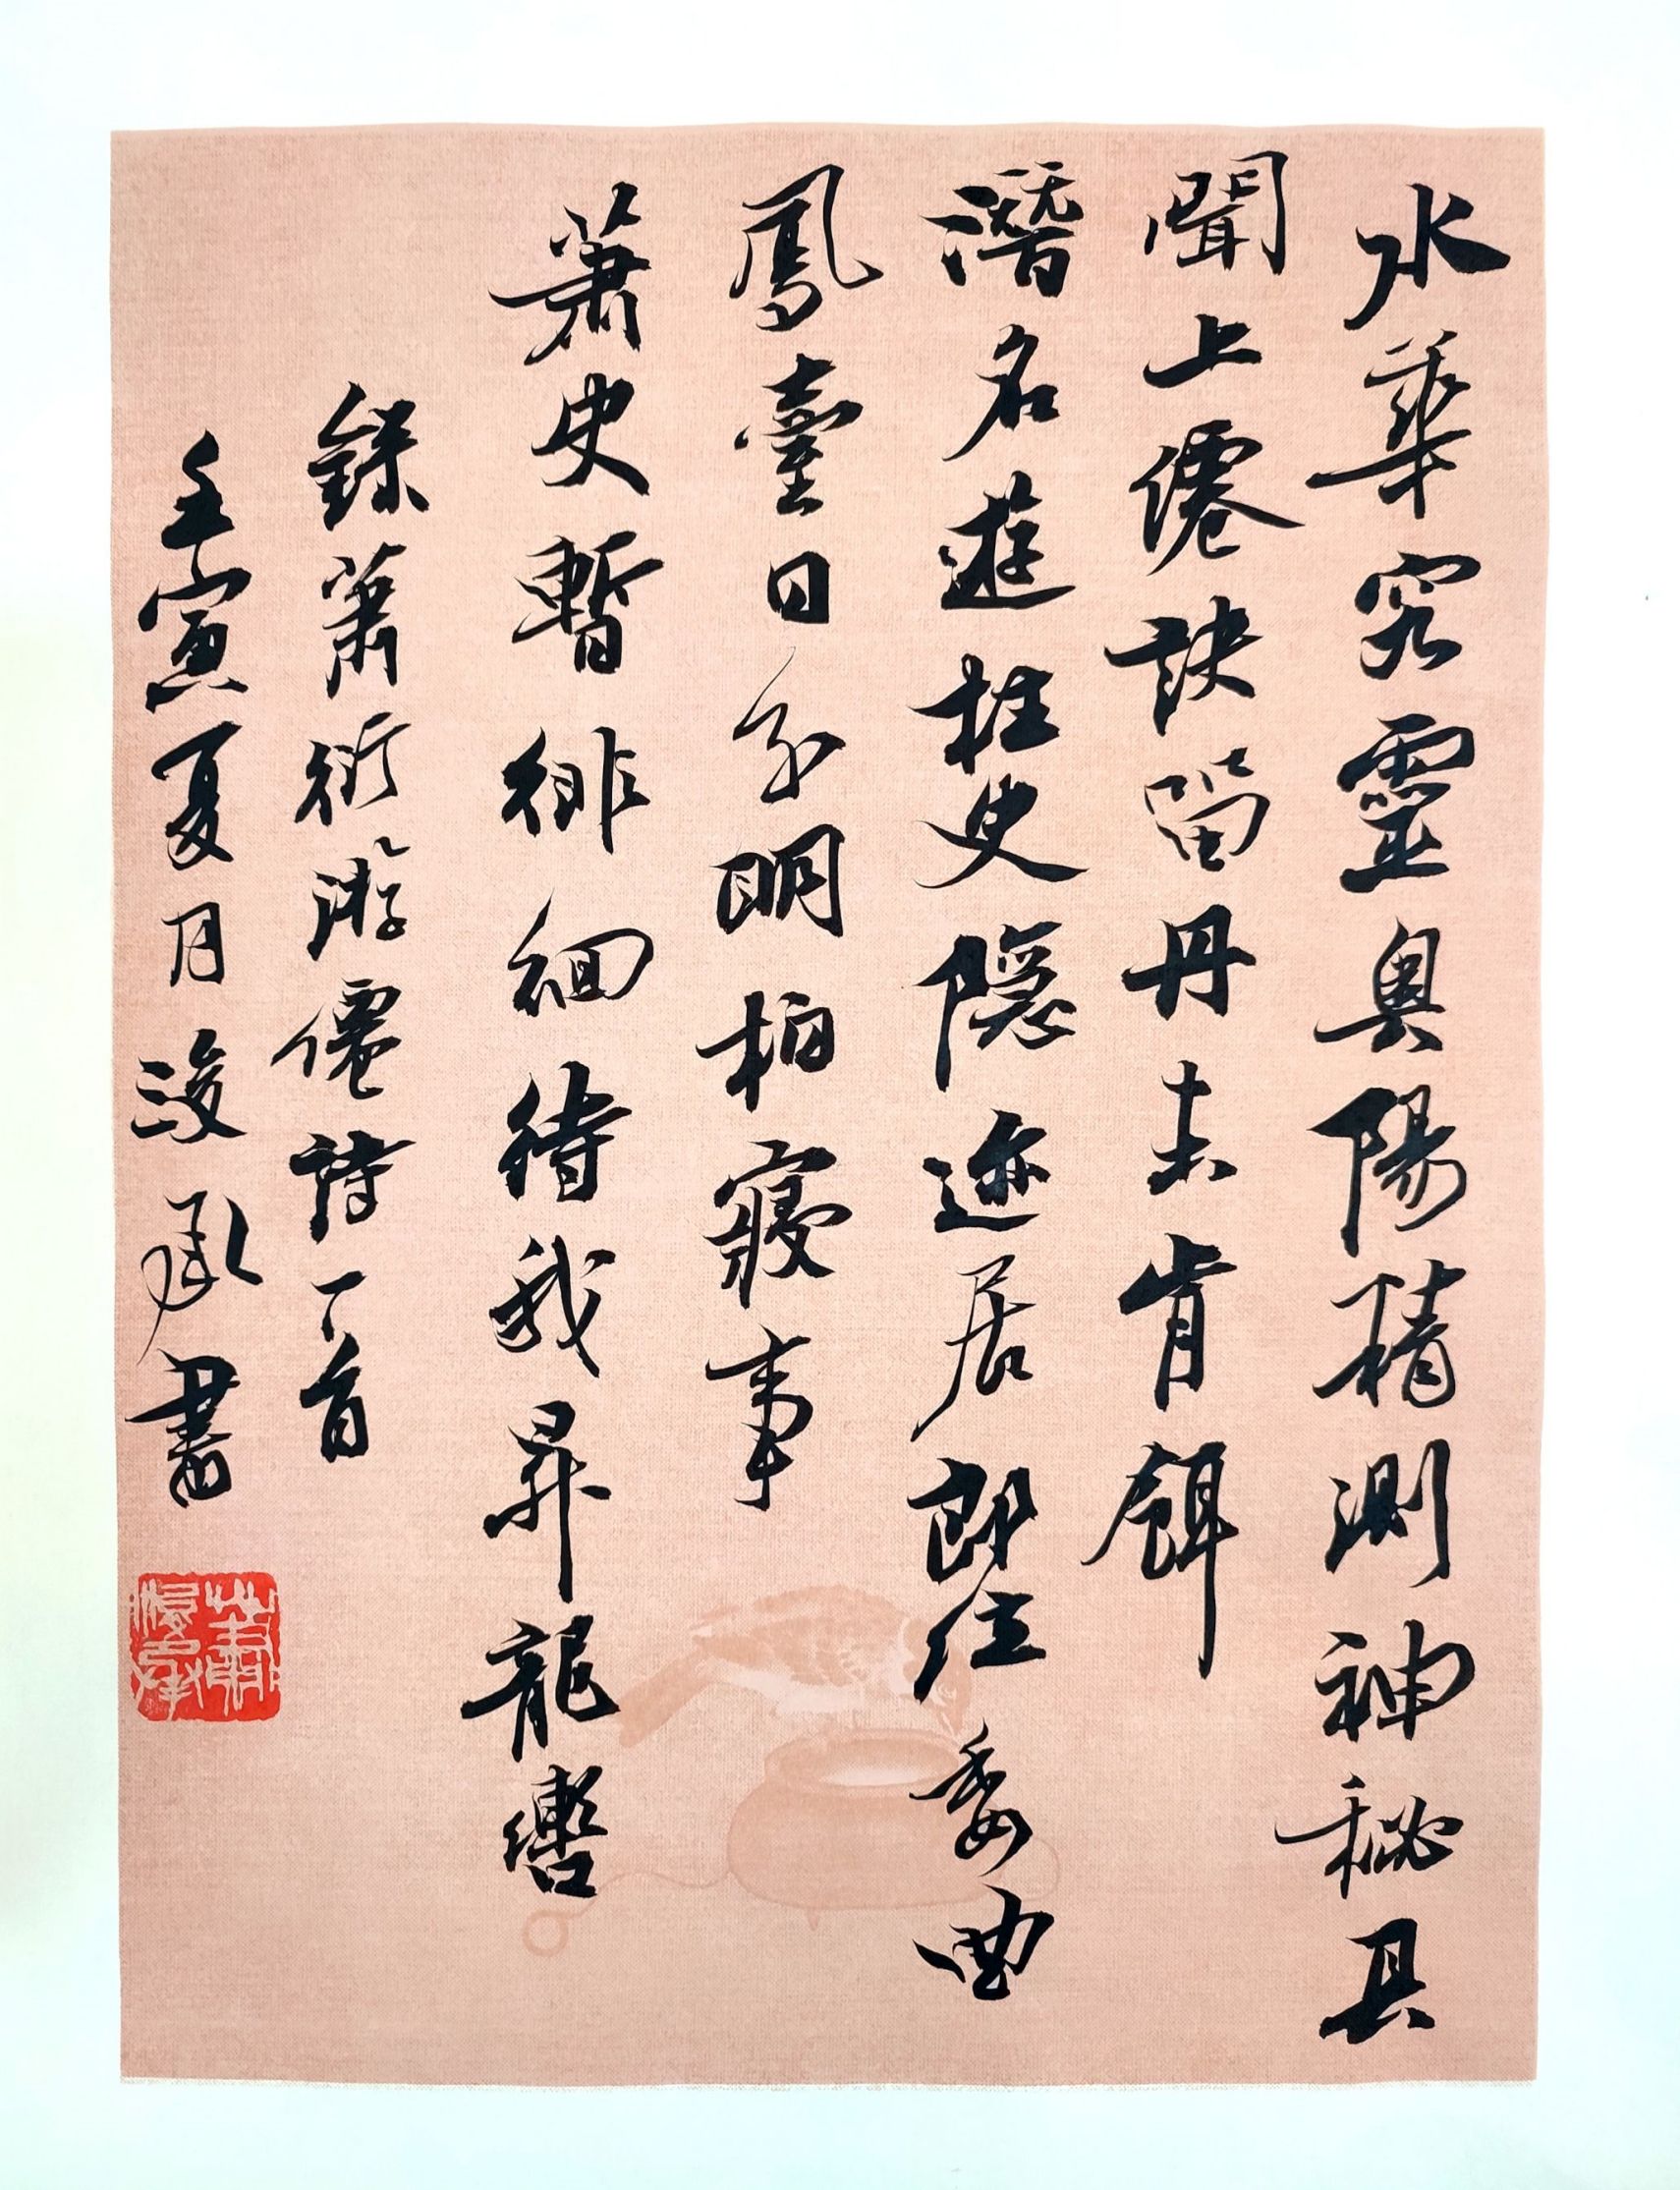 水華究靈奧陽精測神秘具
聞上僊訣留丹未肯餌
潛名遊柱史隱迹居郎位委曲
鳳臺日分明柏寢事
蕭史暫徘徊待我昇龍轡
錄蕭衍游僊詩一首
壬寅夏月浚承書
蕭浚承